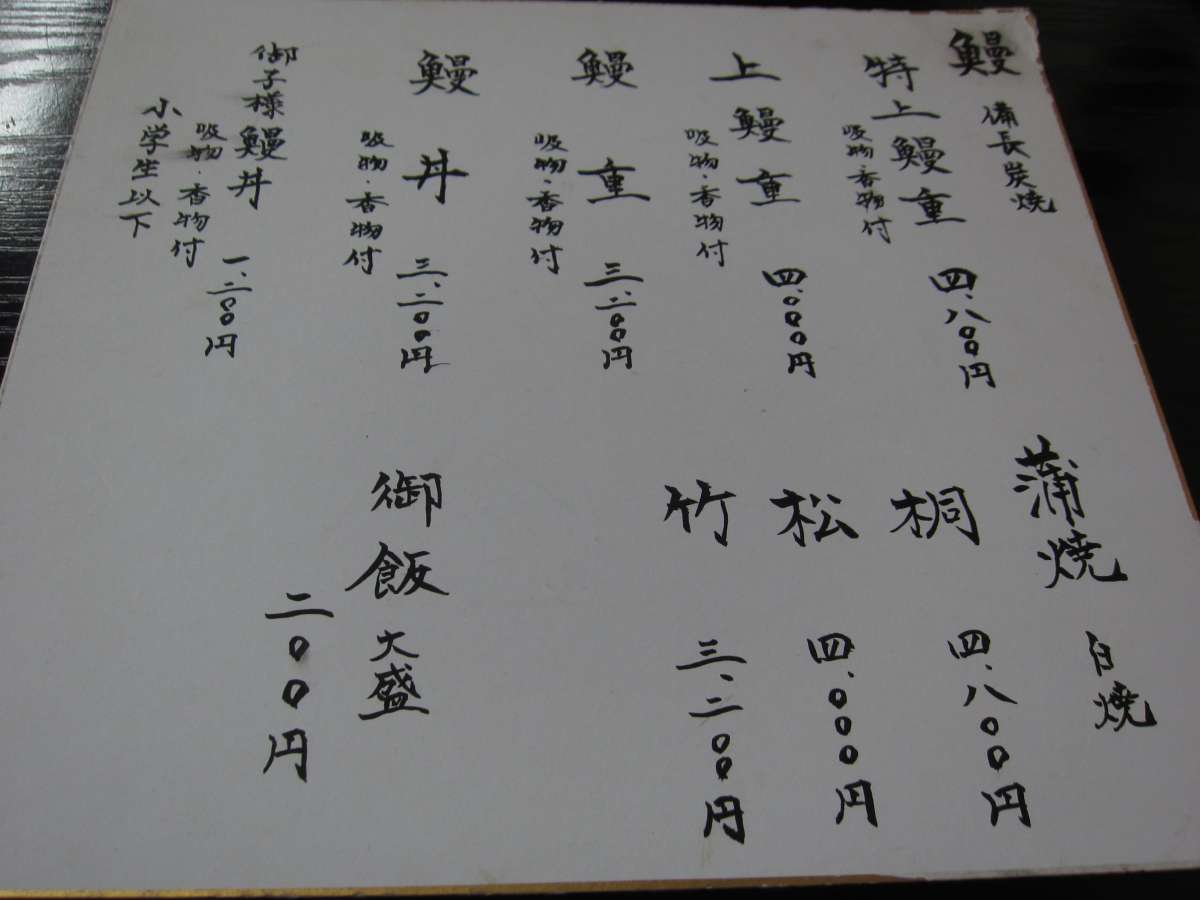 鰻
備長炭焼
特上鰻重
吸物・香物付
四、八〇〇円
上鰻重
吸物・香物付
四、〇〇〇円
鰻重
吸物・香物付
三、二〇〇円
鰻丼
吸物・香物付
三、二〇〇円
御子様鰻丼
吸物・香物付
小学生以下
一、二〇〇円
蒲焼
白焼
桐
四、八〇〇円
松
四、〇〇〇円
竹
三、二〇〇円
御飯大盛
二〇〇円